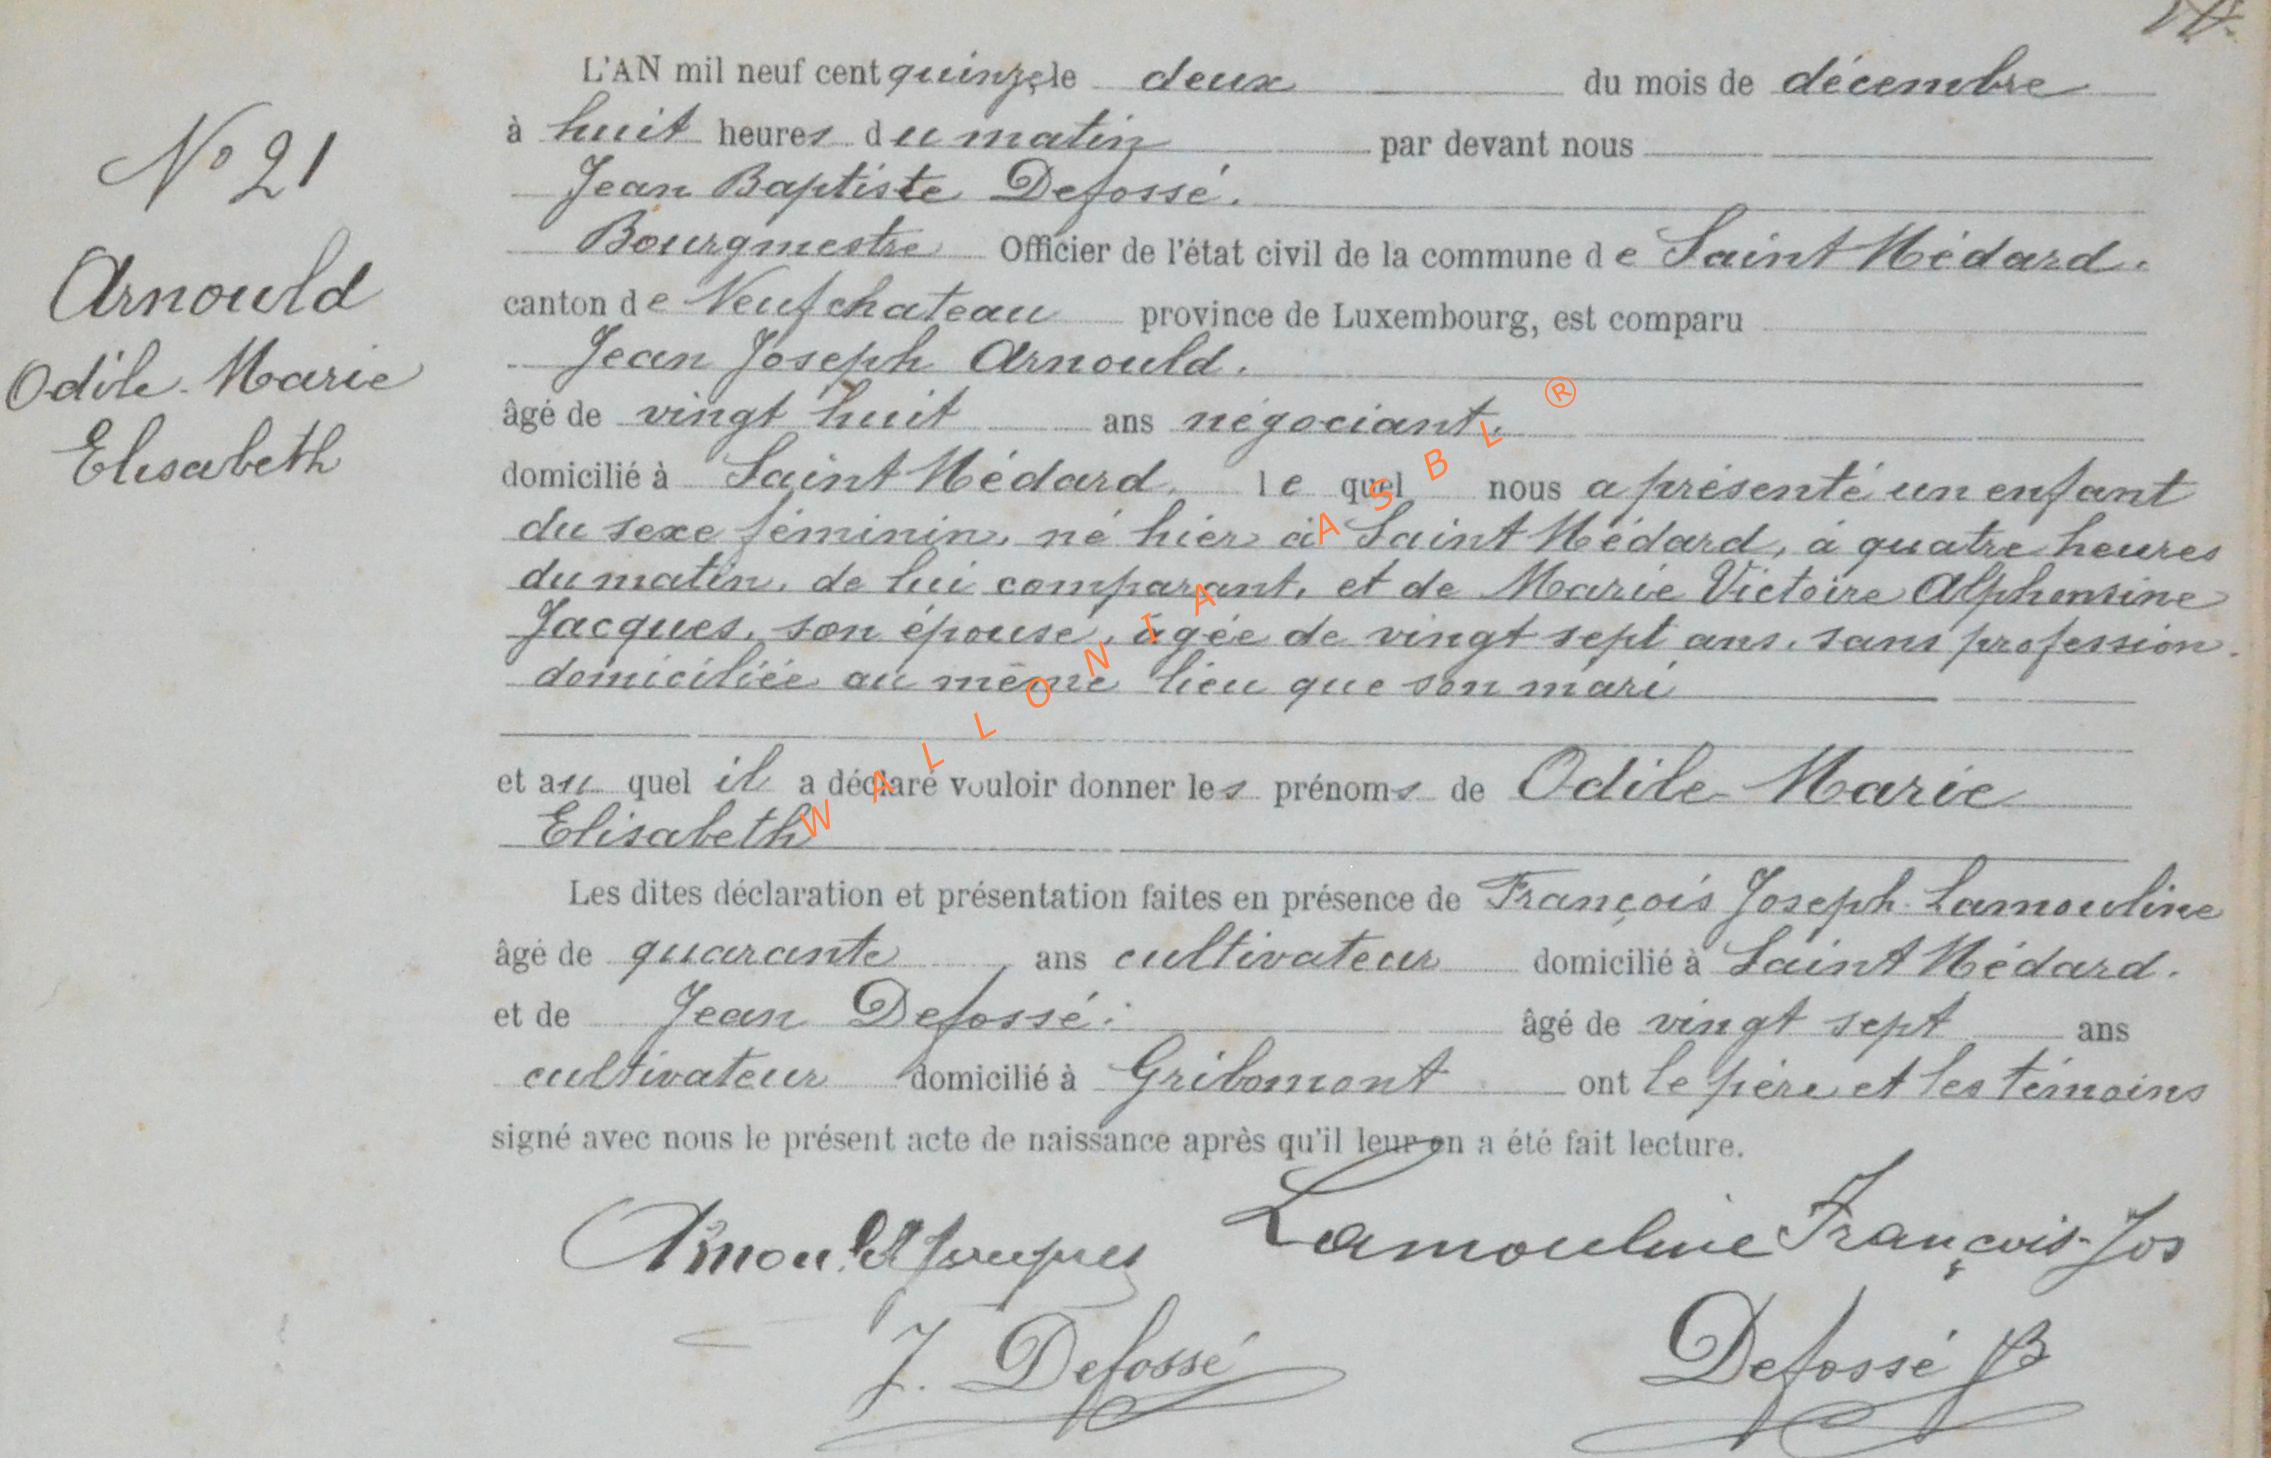 N° 21
Arnould
Odile Marie
Elisabeth
L'AN mil neuf cent quinze le deux du mois de décembre
à huit heures du matin par devant nous
Jean Baptiste Defossé.
Bourgmestre Officier de l'état civil de la commune de Saint Médard.
canton de Neufchateau province de Luxembourg, est comparu
Jean Joseph Arnould.
âgé de vingt huit ans négociant.
domicilié à Saint Médard. le quel nous a présenté un enfant
du sexe féminin, né hier à Saint Médard, à quatre heures
du matin, de lui comparant, et de Marie Victoire Alphonsine
Jacques, son épouse, âgée de vingt sept ans, sans profession.
domiciliée au même lieu que son mari
et au quel il a déclaré vouloir donner les prénoms de Odile Marie
Elisabeth
Les dites déclaration et présentation faites en présence de François Joseph Lamouline
âgé de quarante ans cultivateur domicilié à Saint Médard.
et de Jean Defossé. âgé de vingt sept ans
cultivateur domicilié à Gribomont ont le père et les témoins
signé avec nous le présent acte de naissance après qu'il leur en a été fait lecture.
Arnould Jacques Lamouline François-Jos
J. Defossé Defossé JB
WALLONIA ASBL ®